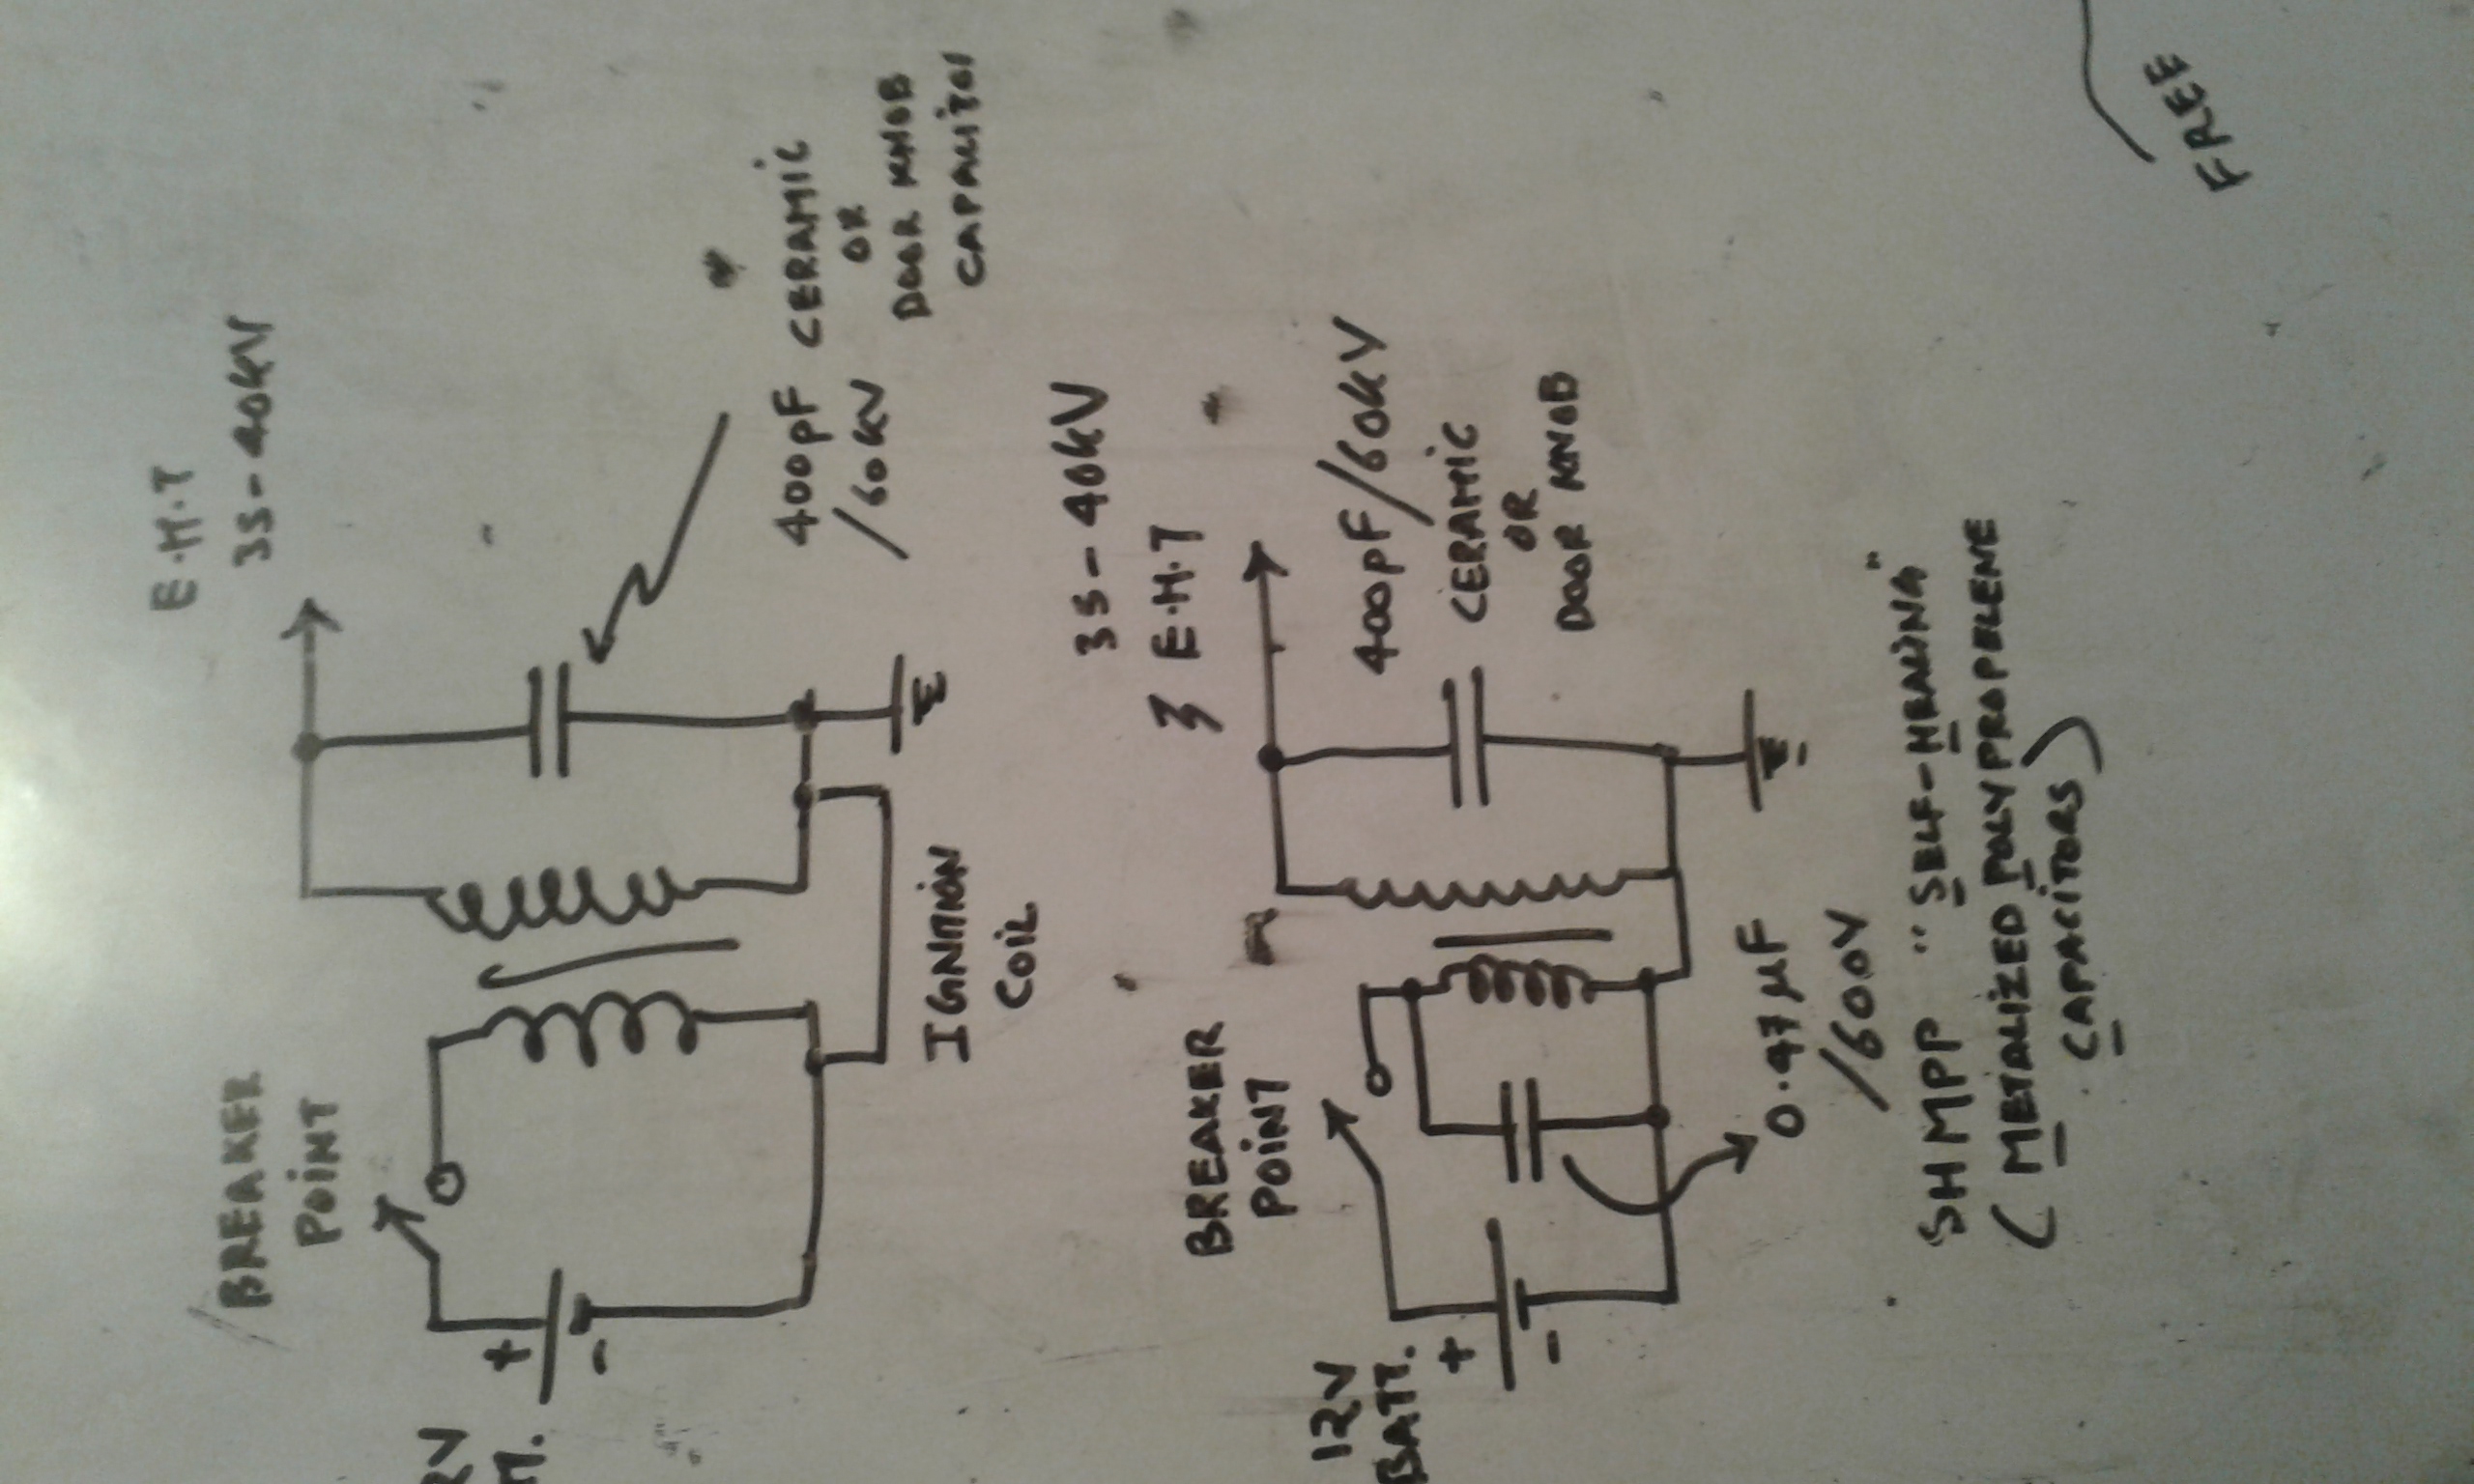 E.H.T
35-40kV
BREAKER
POINT
2V
+
-
400pF CERAMIC
/60kV
OR
DOOR KNOB
CAPACITOR
E
IGNITION
COIL
35-40kV
E.H.T
BREAKER
POINT
12V
BATT.
+
-
400pF/60kV
CERAMIC
OR
DOOR KNOB
E
0.47µF
/600V
SHMPP "SELF-HEALING"
(METALIZED POLYPROPELENE
CAPACITORS)
FREE